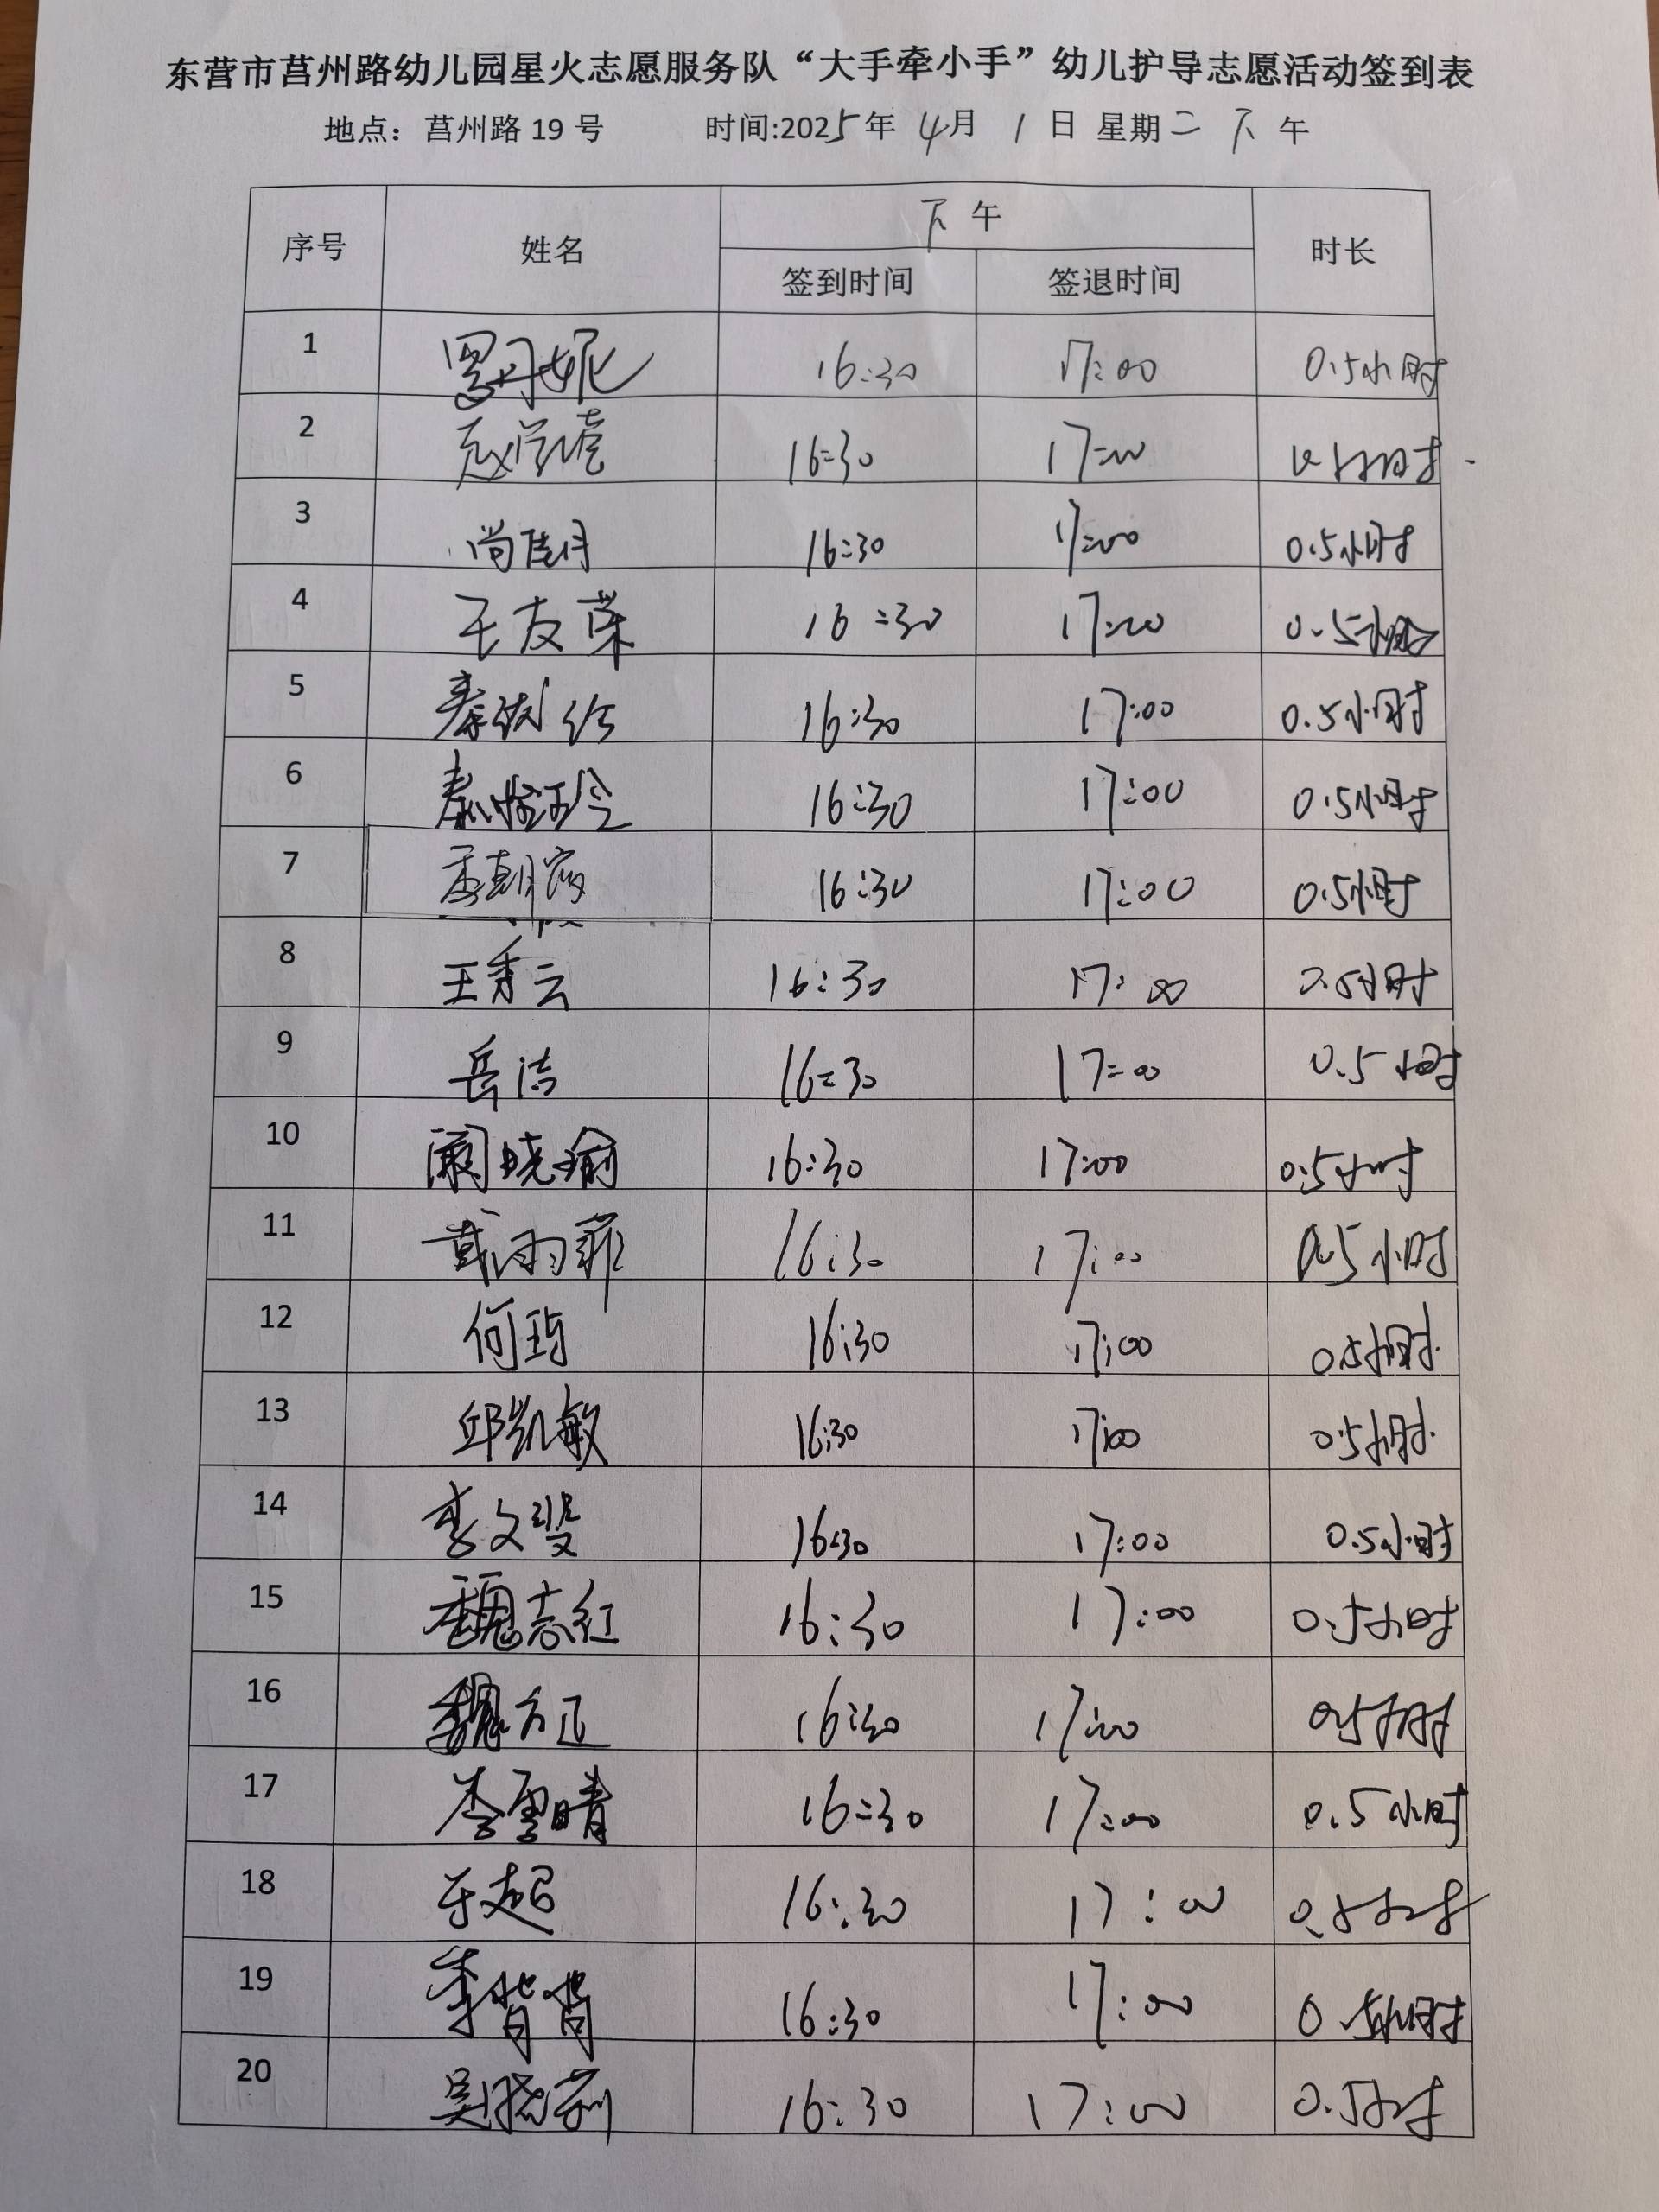 东营市莒州路幼儿园星火志愿服务队“大手牵小手”幼儿护导志愿活动签到表
地点：莒州路 19 号 时间:2025年 4月 1 日 星期二 下 午
序号 姓名 下 午 时长
签到时间 签退时间
1 罗丹妮 16:30 17:00 0.5小时
2 16:30 17:00 0.5小时
3 尚佳月 16:30 17:00 0.5小时
4 王友荣 16:30 17:00 0.5小时
5 16:30 17:00 0.5小时
6 16:30 17:00 0.5小时
7 16:30 17:00 0.5小时
8 王秀云 16:30 17:00 0.5小时
9 岳洁 16:30 17:00 0.5小时
10 阚晓瑜 16:30 17:00 0.5小时
11 戴雨菲 16:30 17:00 0.5小时
12 何 16:30 17:00 0.5小时
13 邱凯敏 16:30 17:00 0.5小时
14 李文 16:30 17:00 0.5小时
15 魏志红 16:30 17:00 0.5小时
16 魏方正 16:30 17:00 0.5小时
17 李雪晴 16:30 17:00 0.5小时
18 16:30 17:00 0.5小时
19 16:30 17:00 0.5小时
20 吴晓莉 16:30 17:00 0.5小时